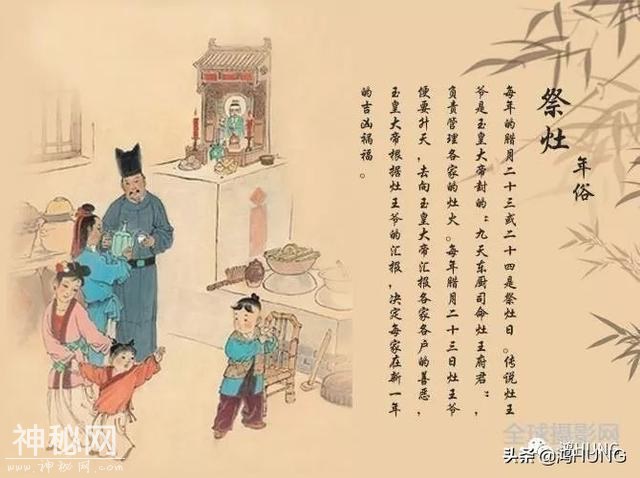 祭灶
年俗
每年的腊月二十三或二十四是祭灶日。传说灶王
爷是玉皇大帝封的：九天东厨司命灶王府君：，
负责管理各家的灶火。每年腊月二十三日灶王爷
便要升天，去向玉皇大帝汇报各家各户的善恶，
玉皇大帝根据灶王爷的汇报，决定每家在新一年
的吉凶祸福。
神秘网
www.神秘网.com
全球摄影网
鸿HUNG
头条@鸿HUNG